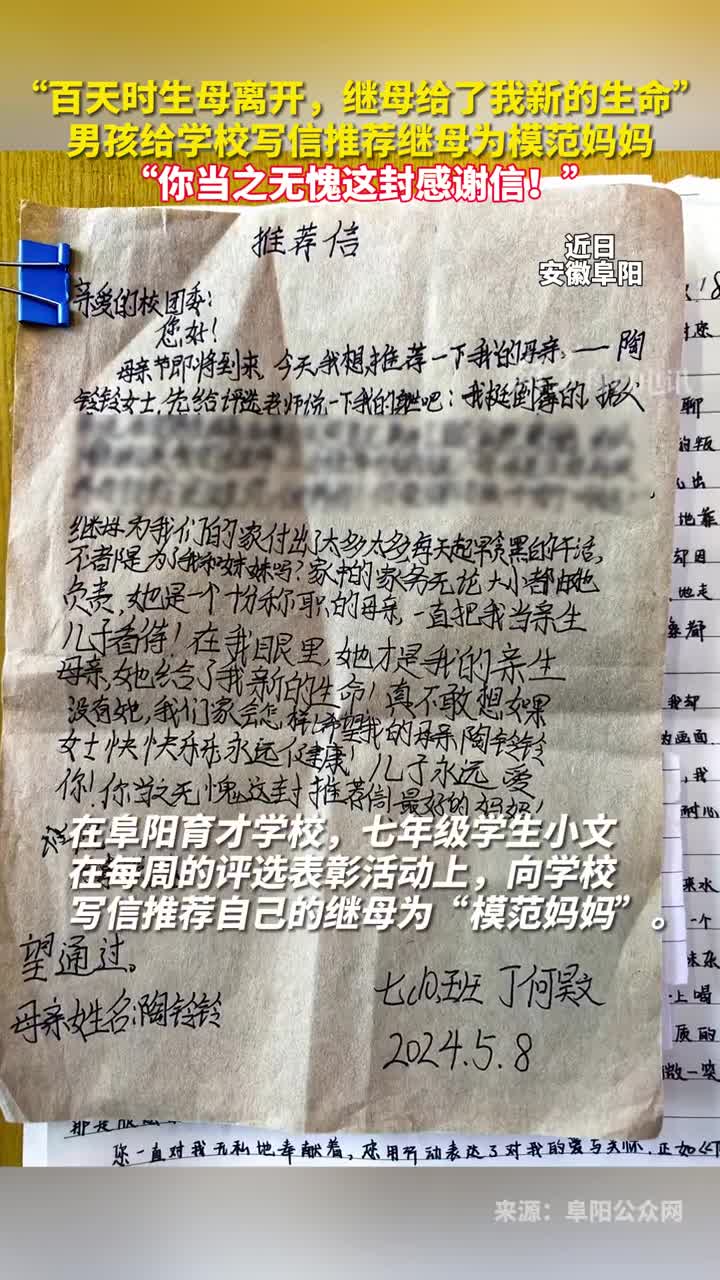 “百天时生母离开，继母给了我新的生命”
男孩给学校写信推荐继母为模范妈妈
“你当之无愧这封感谢信！”
近日
安徽阜阳
推荐信
亲爱的校团委：
您好！
母亲节即将到来，今天我想推荐一下我的母亲：——陶
铃铃女士，先给评选老师说一下我的身世吧：我挺倒霉的，据父
继母为我们的家付出了太多太多每天起早贪黑的干活，
不都是为了我和妹妹吗？家中的家务无论大小都由她
负责，她是一个十分称职的母亲，一直把我当亲生
儿子看待！在我眼里，她才是我的亲生
母亲，她给了我新的生命！真不敢想如果
没有她，我们家会怎样！希望我的母亲陶铃铃
女士快快乐乐永远健康！儿子永远爱
你！你当之无愧这封推荐信！最好的妈妈！
在阜阳育才学校，七年级学生小文
在每周的评选表彰活动上，向学校
写信推荐自己的继母为“模范妈妈”。
望通过。
母亲姓名：陶铃铃
班 丁何昊文
2024.5.8
您一直对我无私地奉献着，您用行动表达了对我的爱与关怀，正如
来源：阜阳公众网